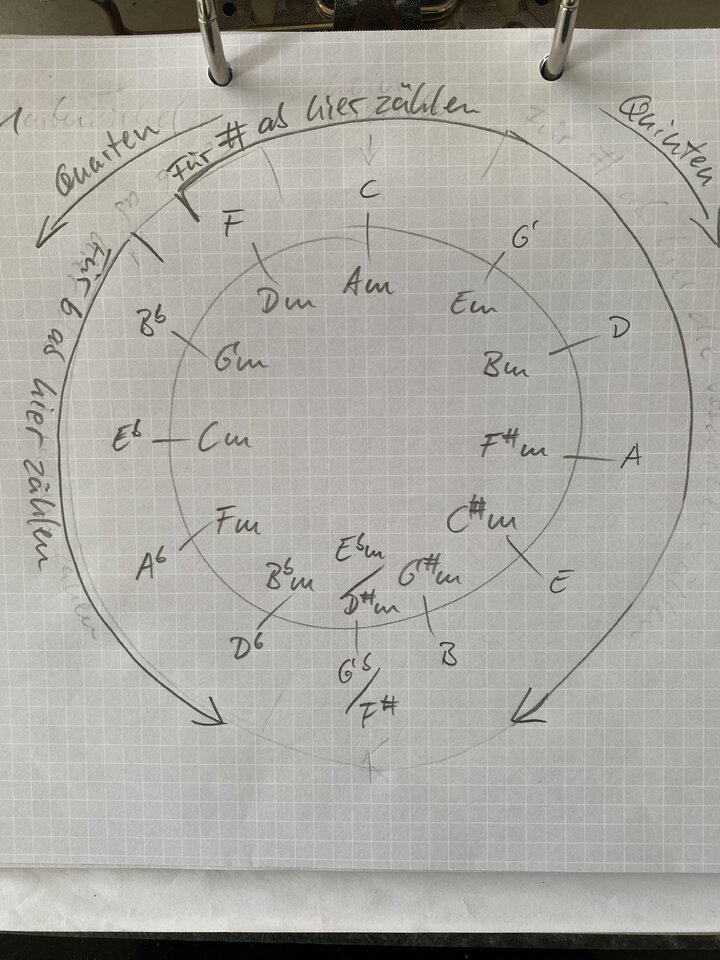 Quarten
Für # ab hier zählen
Quinten
Für b ab hier zählen
C
Am
G
Em
D
Bm
A
F#m
E
C#m
B
G#m
Gb/F#
Ebm/D#m
Db
Bbm
Ab
Fm
Eb
Cm
Bb
Gm
F
Dm